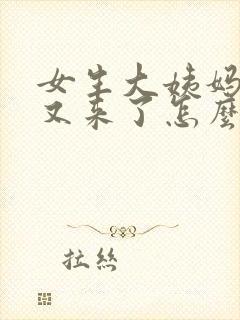 女生大姨妈
又来了怎麼
拉丝